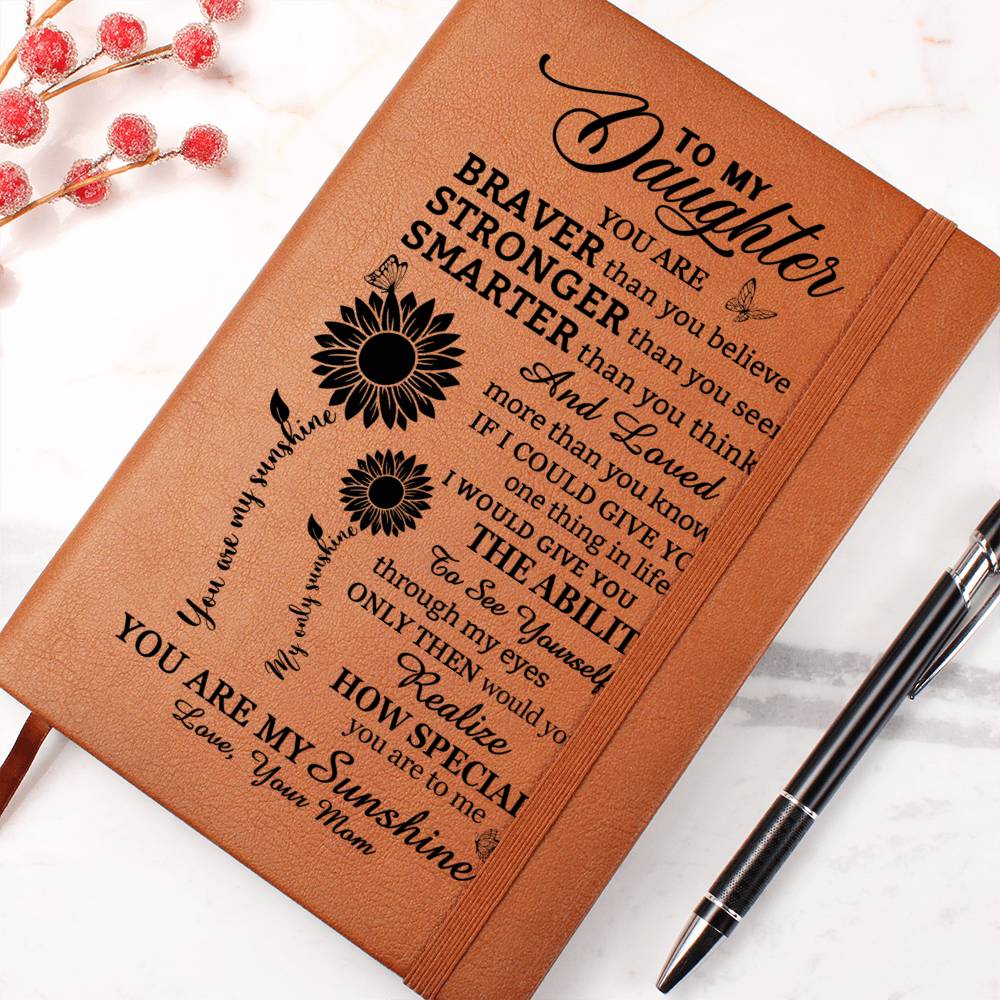 TO MY
Daughter
YOU ARE
BRAVER than you believe
STRONGER than you seem
SMARTER than you think
And Loved
more than you know
IF I COULD GIVE YO
one thing in life
I WOULD GIVE YOU
THE ABILIT
To See Yourself
through my eyes
ONLY THEN would yo
Realize
HOW SPECIAL
you are to me
You are my sunshine
My only sunshine
YOU ARE MY Sunshine
Love, Your Mom